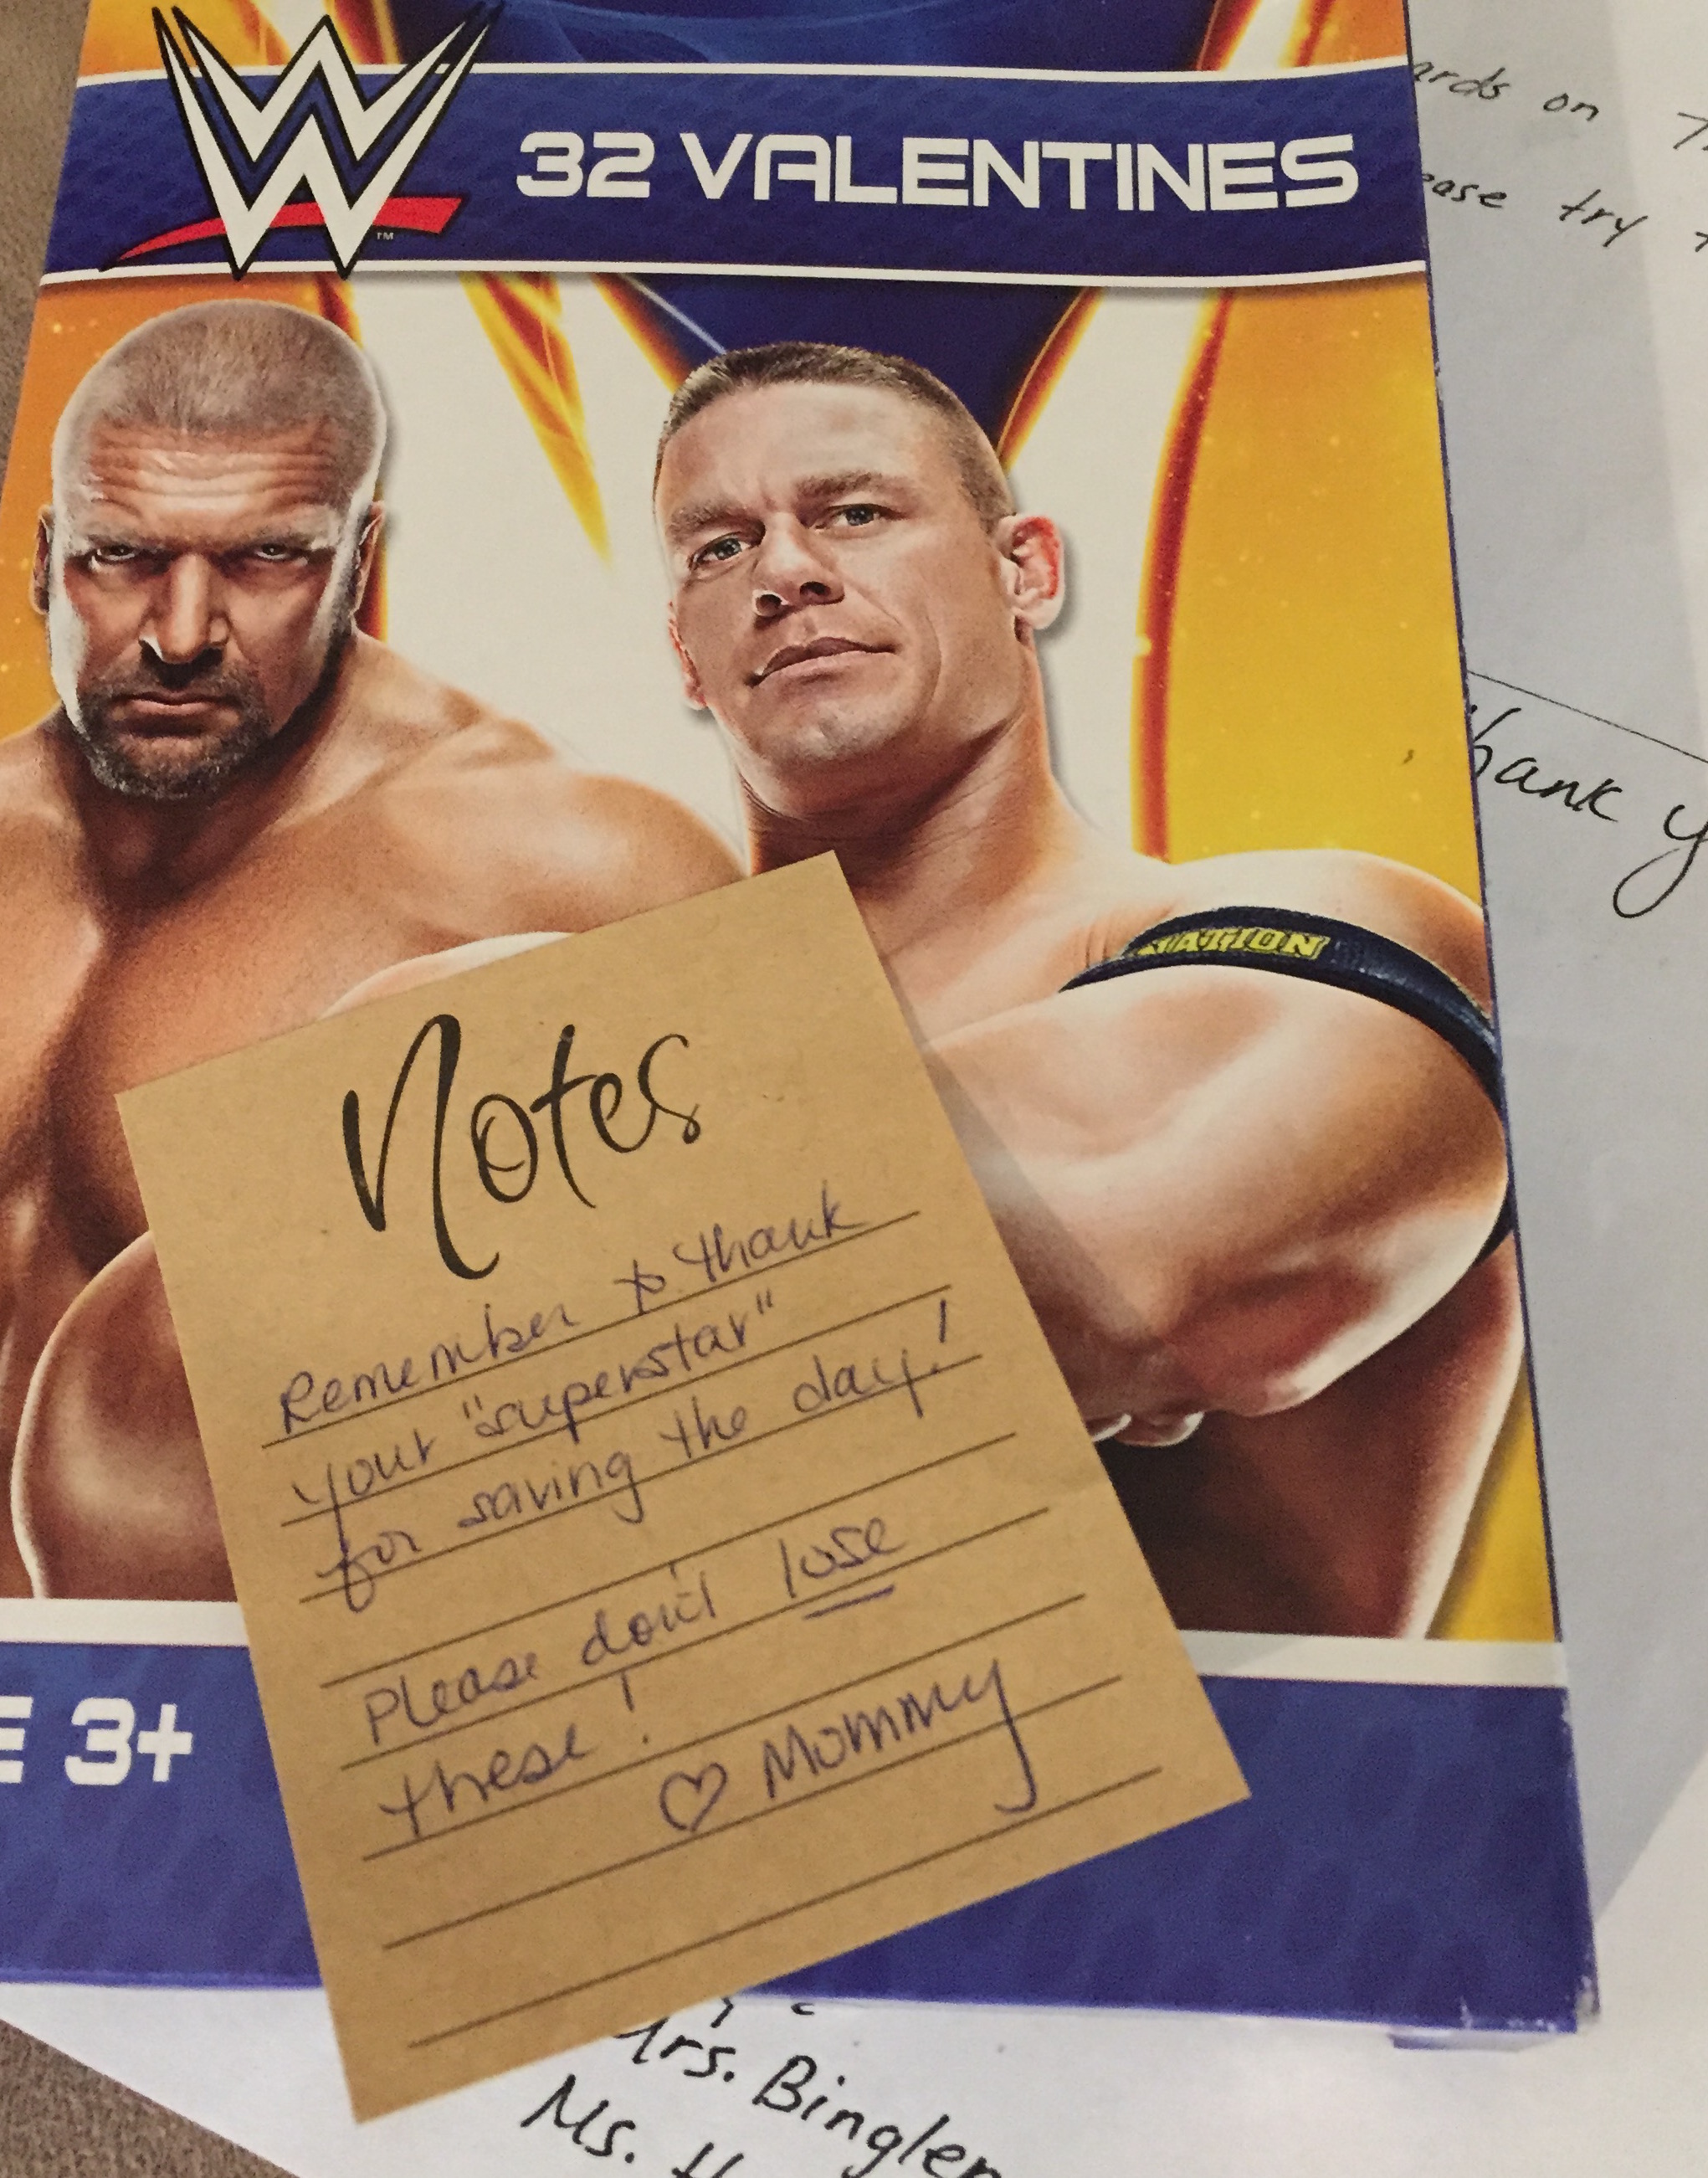 W
32 VALENTINES
on
try
NATION
Notes
Remember to thank
your "superstar"
for saving the day!
Please don't lose
these!
♡ Mommy
3+
Ms.